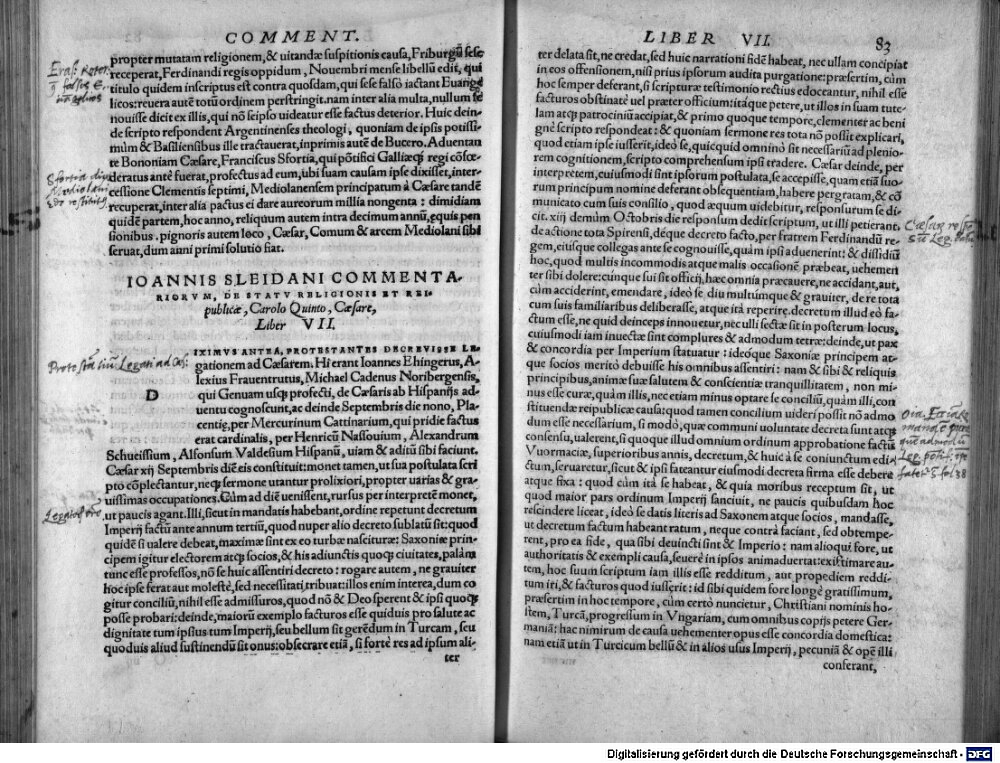 COMMENT.
propter mutatam religionem, & uitandæ suspitionis causa, Friburgū sese
receperat, Ferdinandi regis oppidum, Nouembri mense libellū edit, qui
titulo quidem inscriptus est contra quosdam, qui sese falsò iactant Euange
licos: reuera autē totū ordinem perstringit. nam inter alia multa, nullum se
nouisse dicit ex illis, qui nō seipso uideatur esse factus deterior. Huic dein-
de scripto respondent Argentinenses theologi, quoniam de ipsis potissi-
mùm & Basiliensibus ille tractauerat, inprimis autē de Bucero. Aduentan
te Bononiam Cæsare, Franciscus Sfortia, qui pōtifici Galliæq; regi cōfœ-
deratus antè fuerat, profectus ad eum, ubi suam causam ipse dixisset, inter-
cessione Clementis septimi, Mediolanensem principatum à Cæsare tandē
recuperat, inter alia pactus ei dare aureorum millia nongenta: dimidiam
quidē partem, hoc anno, reliquum autem intra decimum annū, equis pen
sionibus. pignoris autem loco, Cæsar, Comum & arcem Mediolani sibi
seruat, dum anni primi solutio fiat.
Eras: Roter.
Sfortia dux
Mediolani
IOANNIS SLEIDANI COMMENTA-
RIORVM, DE STATV RELIGIONIS ET REI-
publicæ, Carolo Quinto, Cæsare,
Liber VII.
Protestātiū Legati ad Cæs:
DIXIMVS ANTEA, PROTESTANTES DECREVISSE LE
gationem ad Cæsarem. Hi erant Ioannes Ehingerus, A-
lexius Frauentrutus, Michael Cadenus Noribergensis,
qui Genuam usq; profecti, de Cæsaris ab Hispanijs ad-
uentu cognoscunt, ac deinde Septembris die nono, Pla-
centię, per Mercurinum Cattinarium, qui pridie factus
erat cardinalis, per Henricū Nassouium, Alexandrum
Schueissium, Alfonsum Valdesium Hispanū, uiam & aditū sibi faciunt.
Cæsar xij Septembris diē eis constituit: monet tamen, ut sua postulata scri
pto cōplectantur, neq; sermone utantur prolixiori, propter uarias & gra-
uissimas occupationes. Cùm ad diē uenissent, rursus per interpretē monet,
ut paucis agant. Illi, sicut in mandatis habebant, ordine repetunt decretum
Imperij factū ante annum tertiū, quod nuper alio decreto sublatū sit: quod
quidē si ualere debeat, maximæ sint ex eo turbæ nasciturę: Saxoniæ prin-
cipem igitur electorem atq; socios, & his adiunctis quoq; ciuitates, palàm
tunc esse professos, nō se huic assentiri decreto: rogare autem, ne grauiter
hoc ipse ferat aut molestè, sed necessitati tribuat: illos enim interea, dum co
gitur conciliū, nihil esse admissuros, quod nō & Deo sperent & ipsi quoq;
posse probari: deinde, maiorū exemplo facturos esse quiduis pro salute ac
dignitate tum ipsius tum Imperij, seu bellum sit gerēdum in Turcam, seu
quoduis aliud sustinendū sit onus: obsecrare etiā, si fortè res ad ipsum ali-
ter
LIBER VII. 83
ter delata sit, ne credat, sed huic narrationi fidē habeat, nec ullam concipiat
in eos offensionem, nisi prius ipsorum audita purgatione: præsertim, cùm
hoc semper deferant, si scripturæ testimonio rectius edoceantur, nihil esse
facturos obstinatè uel præter officium: itáque petere, ut illos in suam tute-
lam atq; patrociniū accipiat, & primo quoque tempore, clementer ac beni
gnè scripto respondeat: & quoniam sermone res tota nō possit explicari,
quod etiam ipse iusserit, ideò se, quicquid omninò sit necessariū ad plenio-
rem cognitionem, scripto comprehensum ipsi tradere. Cæsar deinde, per
interpretem, cuiusmodi sint ipsorum postulata, se accepisse, quam etiā suo-
rum principum nomine deferant obsequentiam, habere pergratam, & cō
municato cum suis consilio, quod æquum uidebitur, responsurum se di-
cit. xiij demùm Octobris die responsum dedit scriptum, ut illi petierant:
de actione tota Spirensi, déque decreto facto, per fratrem Ferdinandū re-
gem, eiusque collegas ante se cognouisse, quàm ipsi aduenerint: & dissidiū
hoc, quod multis incommodis atque malis occasionē præbeat, uehemen
ter sibi dolere: cúnque sui sit officij, hæc omnia præcauere, ne accidant, aut,
cùm acciderint, emendare, ideò se diu multúmque & grauiter, de re tota
cum suis familiaribus deliberasse, atque ità reperire, decretum illud eò fa-
ctum esse, ne quid deinceps innouetur, nec ulli sectæ sit in posterum locus,
cuiusmodi iam inuectæ sint complures & admodum tetræ: deinde, ut pax
& concordia per Imperium statuatur: ideóque Saxoniæ principem at-
que socios meritò debuisse his omnibus assentiri: nam & sibi & reliquis
principibus, animæ suæ salutem & conscientiæ tranquillitatem, non mi-
nus esse curæ, quàm illis, nec etiam minus optare se conciliū, quàm illi, con
stituendæ reipublicæ causa: quod tamen concilium uideri possit nō admo
dum esse necessarium, si modò, quæ communi uoluntate decreta sunt atq;
consensu, ualerent, si quoque illud omnium ordinum approbatione factū
Vuormaciæ, superioribus annis, decretum, & huic à se coniunctum edi-
ctum, seruaretur, sicut & ipsi fateantur eiusmodi decreta firma esse debere
atque fixa: quod cùm ità se habeat, & quia moribus receptum sit, ut
quod maior pars ordinum Imperij sanciuit, ne paucis quibusdam hoc
rescindere liceat, ideò se datis literis ad Saxonem atque socios, mandasse,
ut decretum factum habeant ratum, neque contrà faciant, sed obtempe-
rent, pro ea fide, qua sibi deuincti sint & Imperio: nam alioqui fore, ut
authoritatis & exempli causa, seuerè in ipsos animaduertat: existimare au-
tem, hoc suum scriptum iam illis esse redditum, aut propediem reddi-
tum iri, & facturos quod iusserit: id sibi quidem fore longè gratissimum,
præsertim in hoc tempore, cùm certò nuncietur, Christiani nominis ho-
stem, Turcā, progressum in Vngariam, cum omnibus copijs petere Ger-
maniā: hac nimirum de causa uehementer opus esse concordia domestica:
nam etiā ut in Turcicum bellū & in alios usus Imperij, pecuniā & opē illi
conferant,
Digitalisierung gefördert durch die Deutsche Forschungsgemeinschaft - DFG